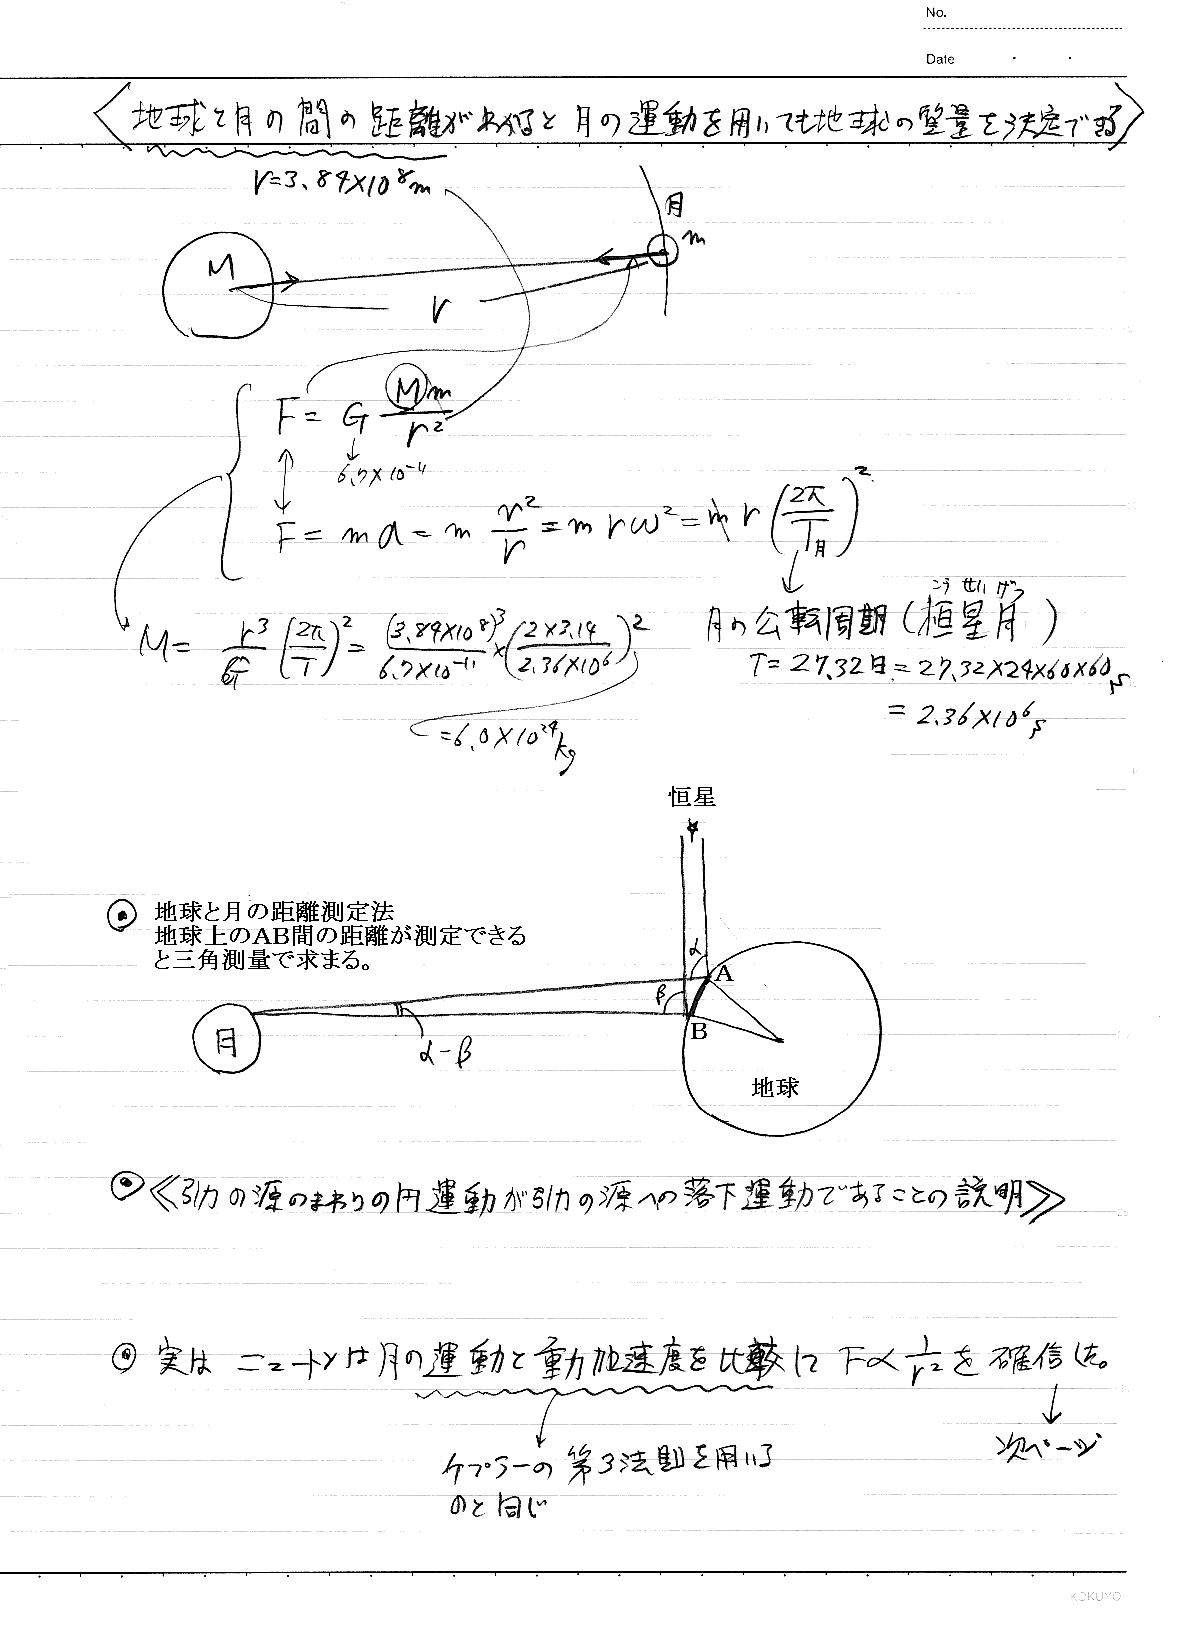 No.
Date
〈地球と月の間の距離がわかると月の運動を用いても地球の質量を決定できる〉
r=3.84×10⁸m
月
m
M
r
F = G Mm/r²
6.7×10⁻¹¹
F = ma = m v²/r = m r ω² = m r (2π/T月)²
こうせいげつ
月の公転周期(恒星月)
M = r³/G (2π/T)² = (3.84×10⁸)³/6.7×10⁻¹¹ × (2×3.14/2.36×10⁶)²
T = 27.32日 = 27.32×24×60×60s
= 2.36×10⁶s
= 6.0×10²⁴kg
恒星
地球と月の距離測定法
地球上のAB間の距離が測定できる
と三角測量で求まる。
α
A
β
B
月
α-β
地球
《引力の源のまわりの円運動が引力の源への落下運動であることの説明》
実は ニュートンは月の運動と重力加速度を比較して F∝1/r² を確信した。
次ページ
ケプラーの第3法則を用いる
のと同じ
KOKUYO